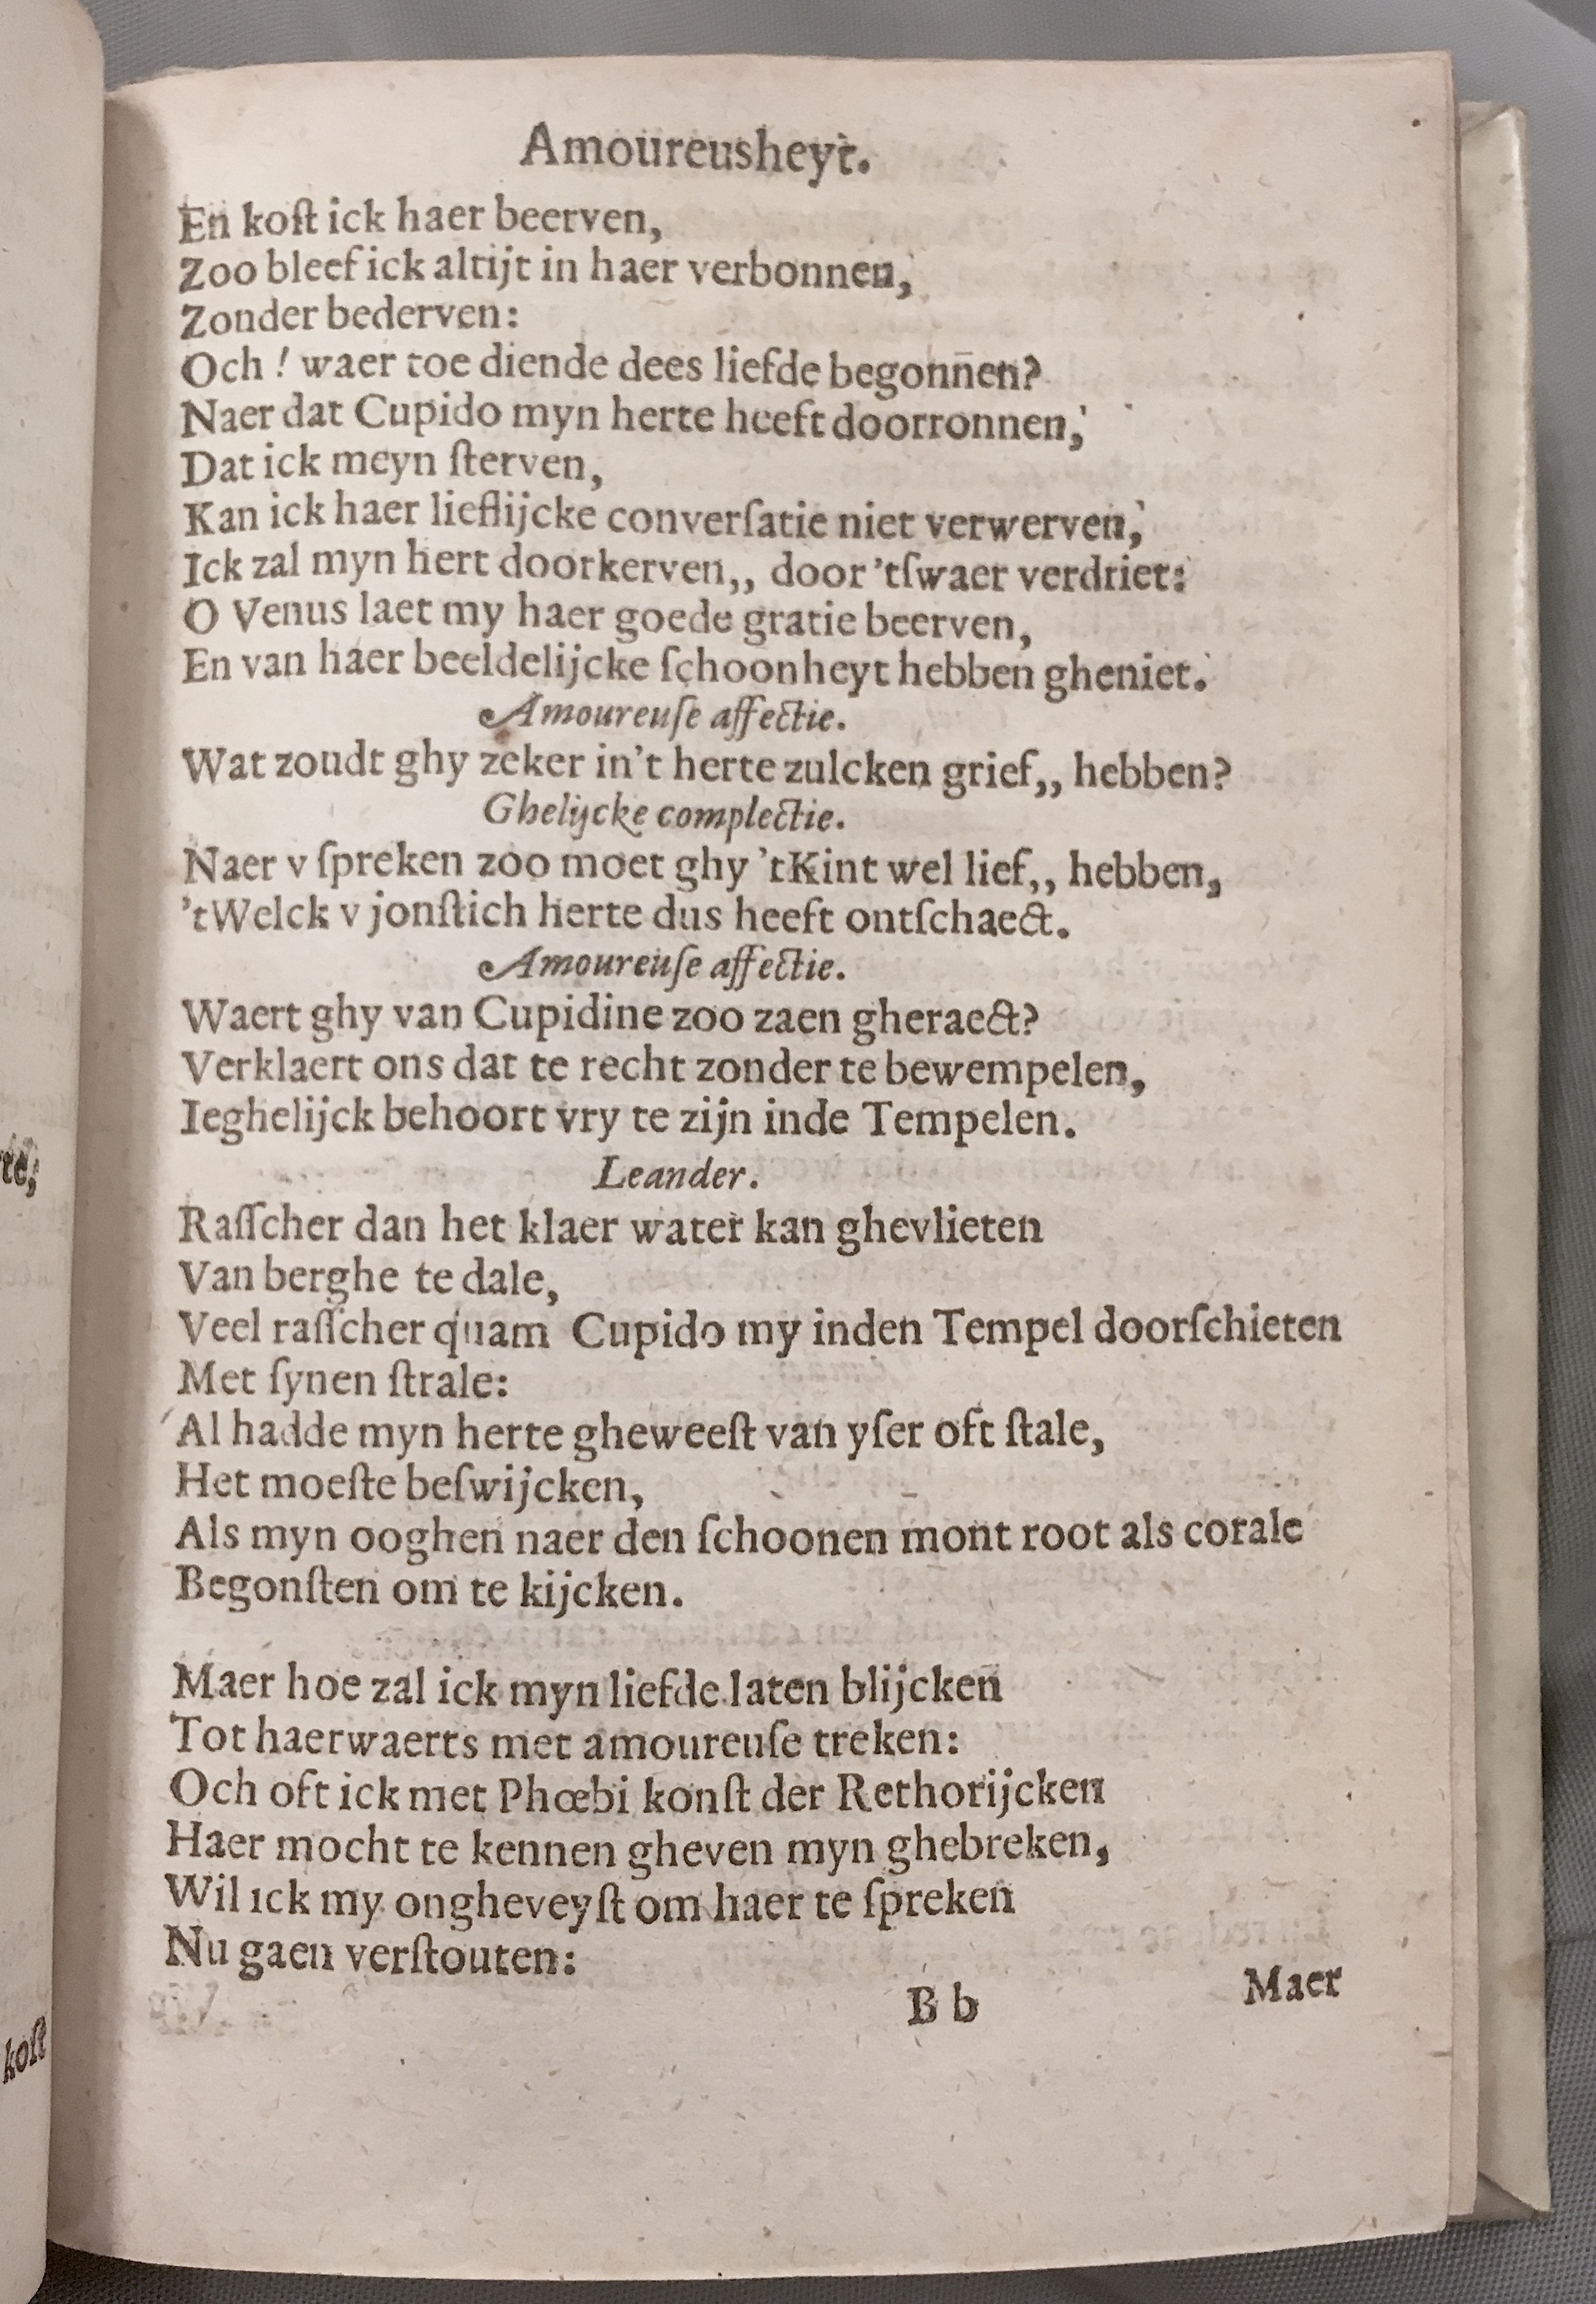 Amoureusheyt.
En koſt ick haer beerven,
Zoo bleef ick altijt in haer verbonnen,
Zonder bederven:
Och ! waer toe diende dees liefde begonnen?
Naer dat Cupido myn herte heeft doorronnen,
Dat ick meyn ſterven,
Kan ick haer lieflijcke converſatie niet verwerven,
Ick zal myn hert doorkerven,, door 'tſwaer verdriet:
O Venus laet my haer goede gratie beerven,
En van haer beeldelijcke ſchoonheyt hebben gheniet.
Amoureuſe affectie.
Wat zoudt ghy zeker in't herte zulcken grief,, hebben?
Ghelijcke complectie.
Naer v ſpreken zoo moet ghy 'tKint wel lief,, hebben,
'tWelck v jonſtich herte dus heeft ontſchaect.
Amoureuſe affectie.
Waert ghy van Cupidine zoo zaen gheraect?
Verklaert ons dat te recht zonder te bewempelen,
Ieghelijck behoort vry te zijn inde Tempelen.
Leander.
Raſſcher dan het klaer water kan ghevlieten
Van berghe te dale,
Veel raſſcher quam Cupido my inden Tempel doorſchieten
Met ſynen ſtrale:
Al hadde myn herte gheweeſt van yſer oft ſtale,
Het moeſte beſwijcken,
Als myn ooghen naer den ſchoonen mont root als corale
Begonſten om te kijcken.
Maer hoe zal ick myn liefde laten blijcken
Tot haerwaerts met amoureuſe treken:
Och oft ick met Phœbi konſt der Rethorijcken
Haer mocht te kennen gheven myn ghebreken,
Wil ick my ongheveyſt om haer te ſpreken
Nu gaen verſtouten:
B b
Maer
koſt